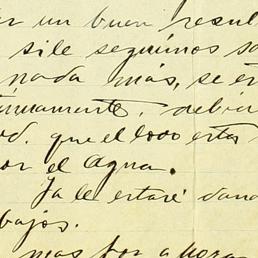 er un buen resul
sile seguimos sa
nada mas, se en
timamente, debi
od. que el lodo esta
or el Agua.
Ya le estaré dand
bajos.
mas por ahora